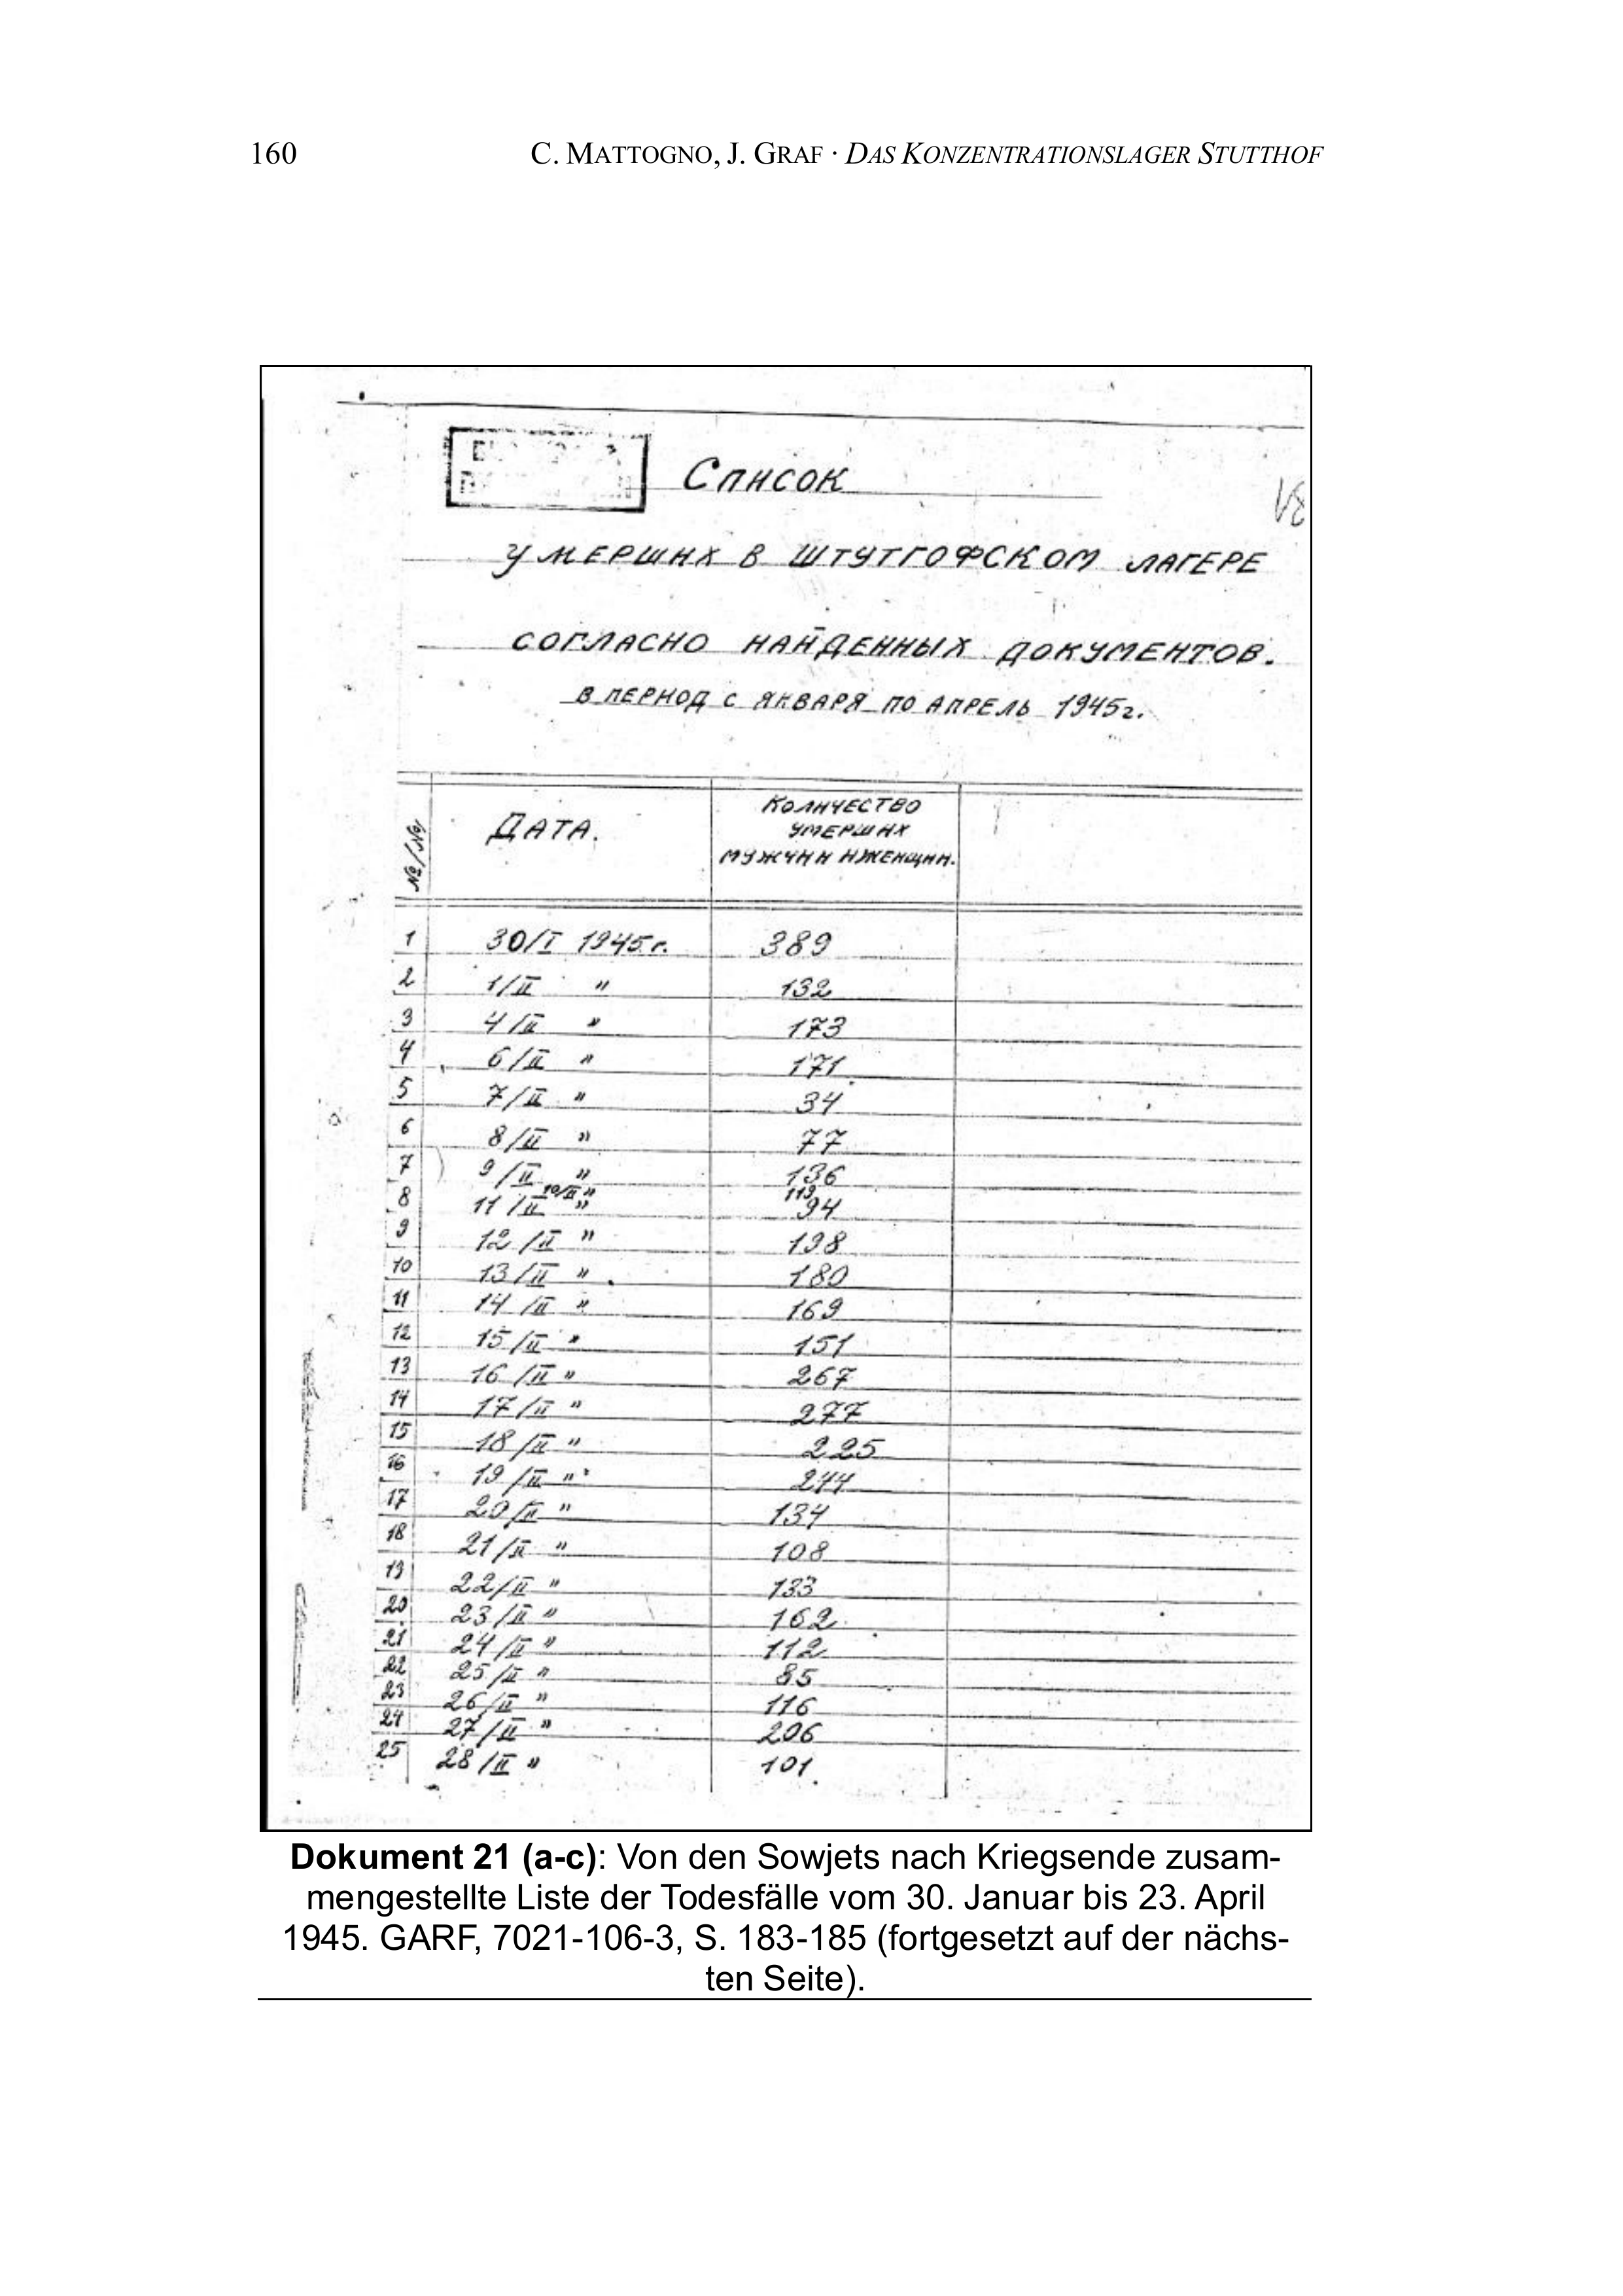 160 C. MATTOGNO, J. GRAF · DAS KONZENTRATIONSLAGER STUTTHOF
Список
УМЕРШИХ В ШТУТГОФСКОМ ЛАГЕРЕ
СОГЛАСНО НАЙДЕННЫХ ДОКУМЕНТОВ.
В ПЕРИОД С ЯНВАРЯ ПО АПРЕЛЬ 1945г.
№/№ ДАТА. КОЛИЧЕСТВО
УМЕРШИХ
МУЖЧИН И ЖЕНЩИН.
1 30/I 1945г. 389
2 1/II " 132
3 4/II " 173
4 6/II " 171
5 7/II " 34
6 8/II " 77
7 9/II " 136
10/II " 119
8 11/II " 94
9 12/II " 198
10 13/II " 180
11 14/II " 169
12 15/II " 151
13 16/II " 267
14 17/II " 277
15 18/II " 225
16 19/II " 244
17 20/II " 134
18 21/II " 108
19 22/II " 133
20 23/II " 162
21 24/II " 112
22 25/II " 85
23 26/II " 116
24 27/II " 206
25 28/II " 101
Dokument 21 (a-c): Von den Sowjets nach Kriegsende zusam-
mengestellte Liste der Todesfälle vom 30. Januar bis 23. April
1945. GARF, 7021-106-3, S. 183-185 (fortgesetzt auf der nächs-
ten Seite).